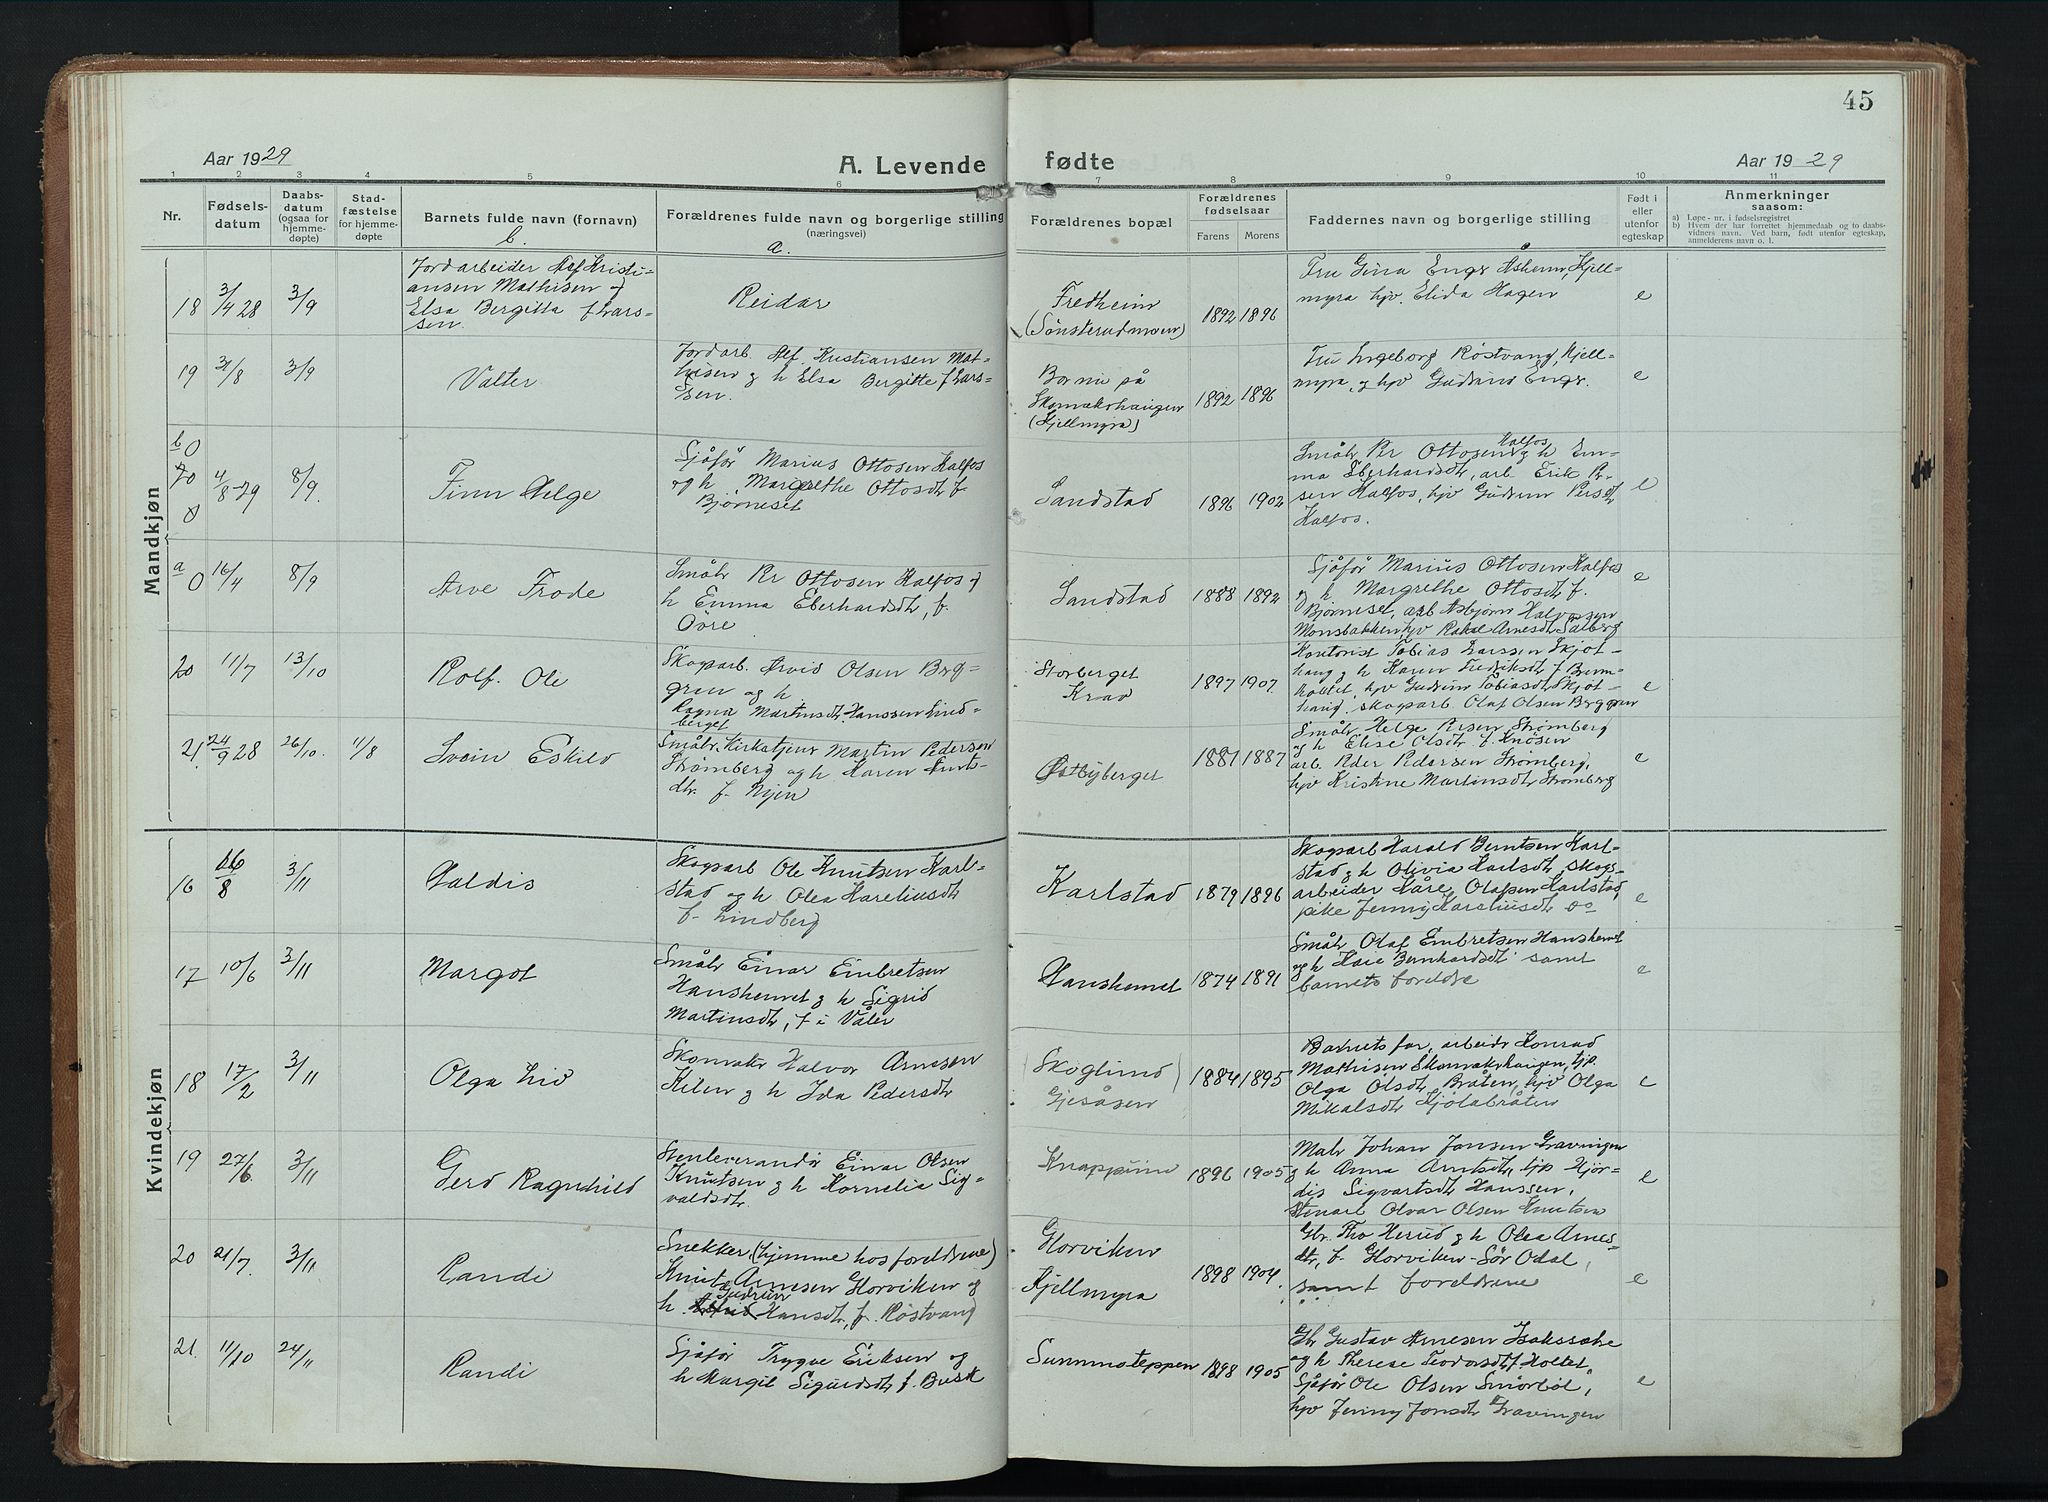 45
Aar 1929
A. Levende fødte
Aar 1929
1 2 3 4 5 6 7 8 9 10 11
Nr.
Fødsels-
datum
Daabs-
datum
(ogsaa for
hjemme-
døpte)
Stad-
fæstelse
for hjemme-
døpte
Barnets fulde navn (fornavn)
b.
Forældrenes fulde navn og borgerlige stilling
(næringsvei)
a.
Forældrenes bopæl
Forældrenes
fødselsaar
Farens Morens
Faddernes navn og borgerlige stilling
Født i
eller
utenfor
egteskap
Anmerkninger
saasom:
a) Løpe-nr. i fødselsregistret
b) Hvem der har forrettet hjemmedaab og to daabs-
vidners navn. Ved barn, født utenfor egteskap,
anmelderens navn o. l.
Mandkjøn
18 3/4 28 3/9
Jordarbeider Alf Kristi-
ansen Mathisen og
Elsa Bergitta f Lars-
sen.
Reidar
Fredheim
(Sønsterudmoen)
1892 1896
Fru Gina Enger Åsheim, Kjell-
myra hjv. Elida Hagen
e
19 31/8 3/9
Valter
Jordarb. Alf Kristiansen Mat-
hisen og h Elsa Bergitte f Lars-
sen.
Bor nu på
Skomakerhaugen
(Kjellmyra)
1892 1896
Fru Ingeborg Røstvang, Kjell-
myra, og hjv Gudrun Enger.
e
b 0
20 4/8-29 8/9.
0
Finn Helge
Sjåfør Marius Ottosen Kalfos
og h Margrethe Ottosdtr f.
Bjørneset
Sandstad
1896 1902
Småbr Pr Ottosen Kalfos og h Em-
ma Eberhardsdtr, arb. Erik Pr-
sen Kalfos, hjv Gudrun Persdtr
Kalfos.
e
a 0 16/4 8/9
Arve Frode
Småbr Pr Ottosen Kalfos og
h Emma Eberhardsdtr, f.
Øvre
Sandstad
1888 1892
Sjåfør Marius Ottosen Kalfos
og h. Margrethe Ottosdtr f.
Bjørneset, arb Asbjørn Halvorsen
Monsbakken, hjv Rakel Arnesdtr Salberg
e
20 11/7 13/10
Rolf Ole
Skogarb. Arvid Olsen Berg-
gren og h
Ragna Martinsdtr Hanssen Lind-
berget
Storberget
Krad
1897 1907
Kontorist Tobias Larssen Skjøt-
haug og h Karen Fredriksdtr f. Brenn-
holtet, hjv Gudrun Tobiasdtr Skjøt-
haug, skogarb. Olaf Olsen Berggren
e
21. 24/9 28 26/10. 11/8
Svein Eskild
Småbr. Kirketjener Martin Pedersen
Strømberg og h Karen Knuts-
dtr. f. Nyen
Østbyberget
1881 1887
Småbr. Helge Persen Strømberg
og h Elise Olsdtr f. Knøsen
arb. Peder Pedersen Strømberg,
hjv Kristine Martinsdtr Strømberg
e
Kvindekjøn
16 26/8 3/11
Haldis
Skogarb Ole Knutsen Karl-
stad og h Olea Kareliusdtr
f. Lindberg
Karlstad
1879 1896
Skogarb Harald Berntsen Karl-
stad og h Olivia Karlsdtr, skogs-
arbeider Kåre Olafsen Karlstad,
pike Jenny Kareliusdtr do
e
17 10/6 3/11
Margot
Småbr Einar Embretsen
Hanshemet og h Sigrid
Martinsdtr, f i Våler
Hanshemet
1874 1891
Småbr Olaf Embretsen Hanshemet
og h Kaie Bernhardsdtr samt
barnets foreldre
e
18 17/2 3/11
Olga Liv
Skomaker Halvor Arnesen
Kilen og h Ida Pedersdtr
Skoglund)
Gjesåsen
1884 1895
Barnets far, arbeider Konrad
Mathisen Skomakerhaugen, tjp.
Olga Olsdtr Bråten, hjv Olga
Mikalsdtr Kjølabråten
e
19 27/6. 3/11
Gerd Ragnhild
Stenleverandør Einar Olsen
Knutsen og h Kornelia Sig-
valdsdtr.
Knappum
1896 1905
Maler Johan Jansen Gravingen
og h Anna Arntsdtr, tjp Hjør-
dis Sigvartsdtr Hanssen,
stenarb Olvar Olsen Knutsen
e
20 21/7. 3/11
Randi
Snekker (hjemme hos foreldrene)
Knut Arnesen Horviken og
h. Gudrun Hansdtr, f. Røstvang
Horviken
Kjellmyra
1898 1904
Gbr. Tho Herud og h Olea Arnes-
dtr, f. Horviken - Sør Odal,
samt foreldrene
e
21. 11/10 24/11
Randi
Sjåfør Trygve Eriksen og
h Margit Sigurdsdtr f. Busk
Summoteppen
1898 1905
Gbr Gustav Arnesen Isakssætre
og h Therese Teodorsdtr f Holtet,
Sjåfør Ole Olsen Smørbøl,
hjv Jenny Jonsdtr Gravingen
e